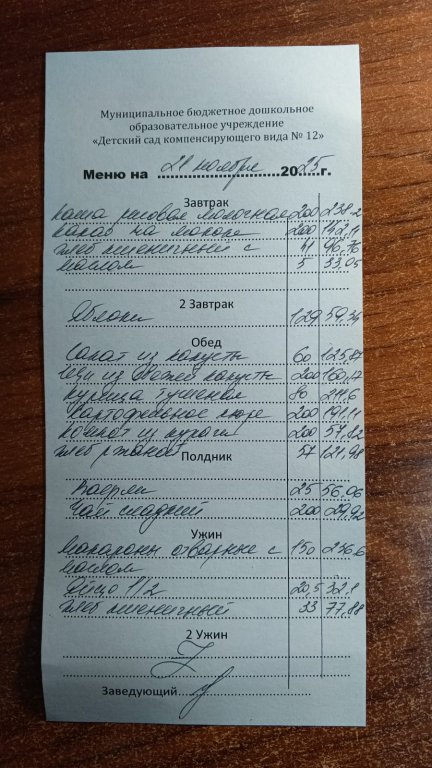 Муниципальное бюджетное дошкольное
образовательное учреждение
«Детский сад компенсирующего вида № 12»
Меню на 21 ноября 2025г.
Завтрак
Каша рисовая молочная 200 238,2
какао на молоке 200 142,11
хлеб пшеничный с 41 96,76
маслом 5 33,05
2 Завтрак
Яблоки 129 59,34
Обед
Салат из капусты 60 125,47
щи из свежей капусты 200 160,17
Курица тушеная 80 214,6
Картофельное пюре 200 191,11
компот из кураги 200 57,82
хлеб ржаной 57 121,98
Полдник
Вафли 25 56,06
Чай сладкий 200 29,92
Ужин
Макароны отварные с 150 236,6
маслом
Яйцо 1/2 20,5 32,1
хлеб пшеничный 33 77,88
2 Ужин
Заведующий